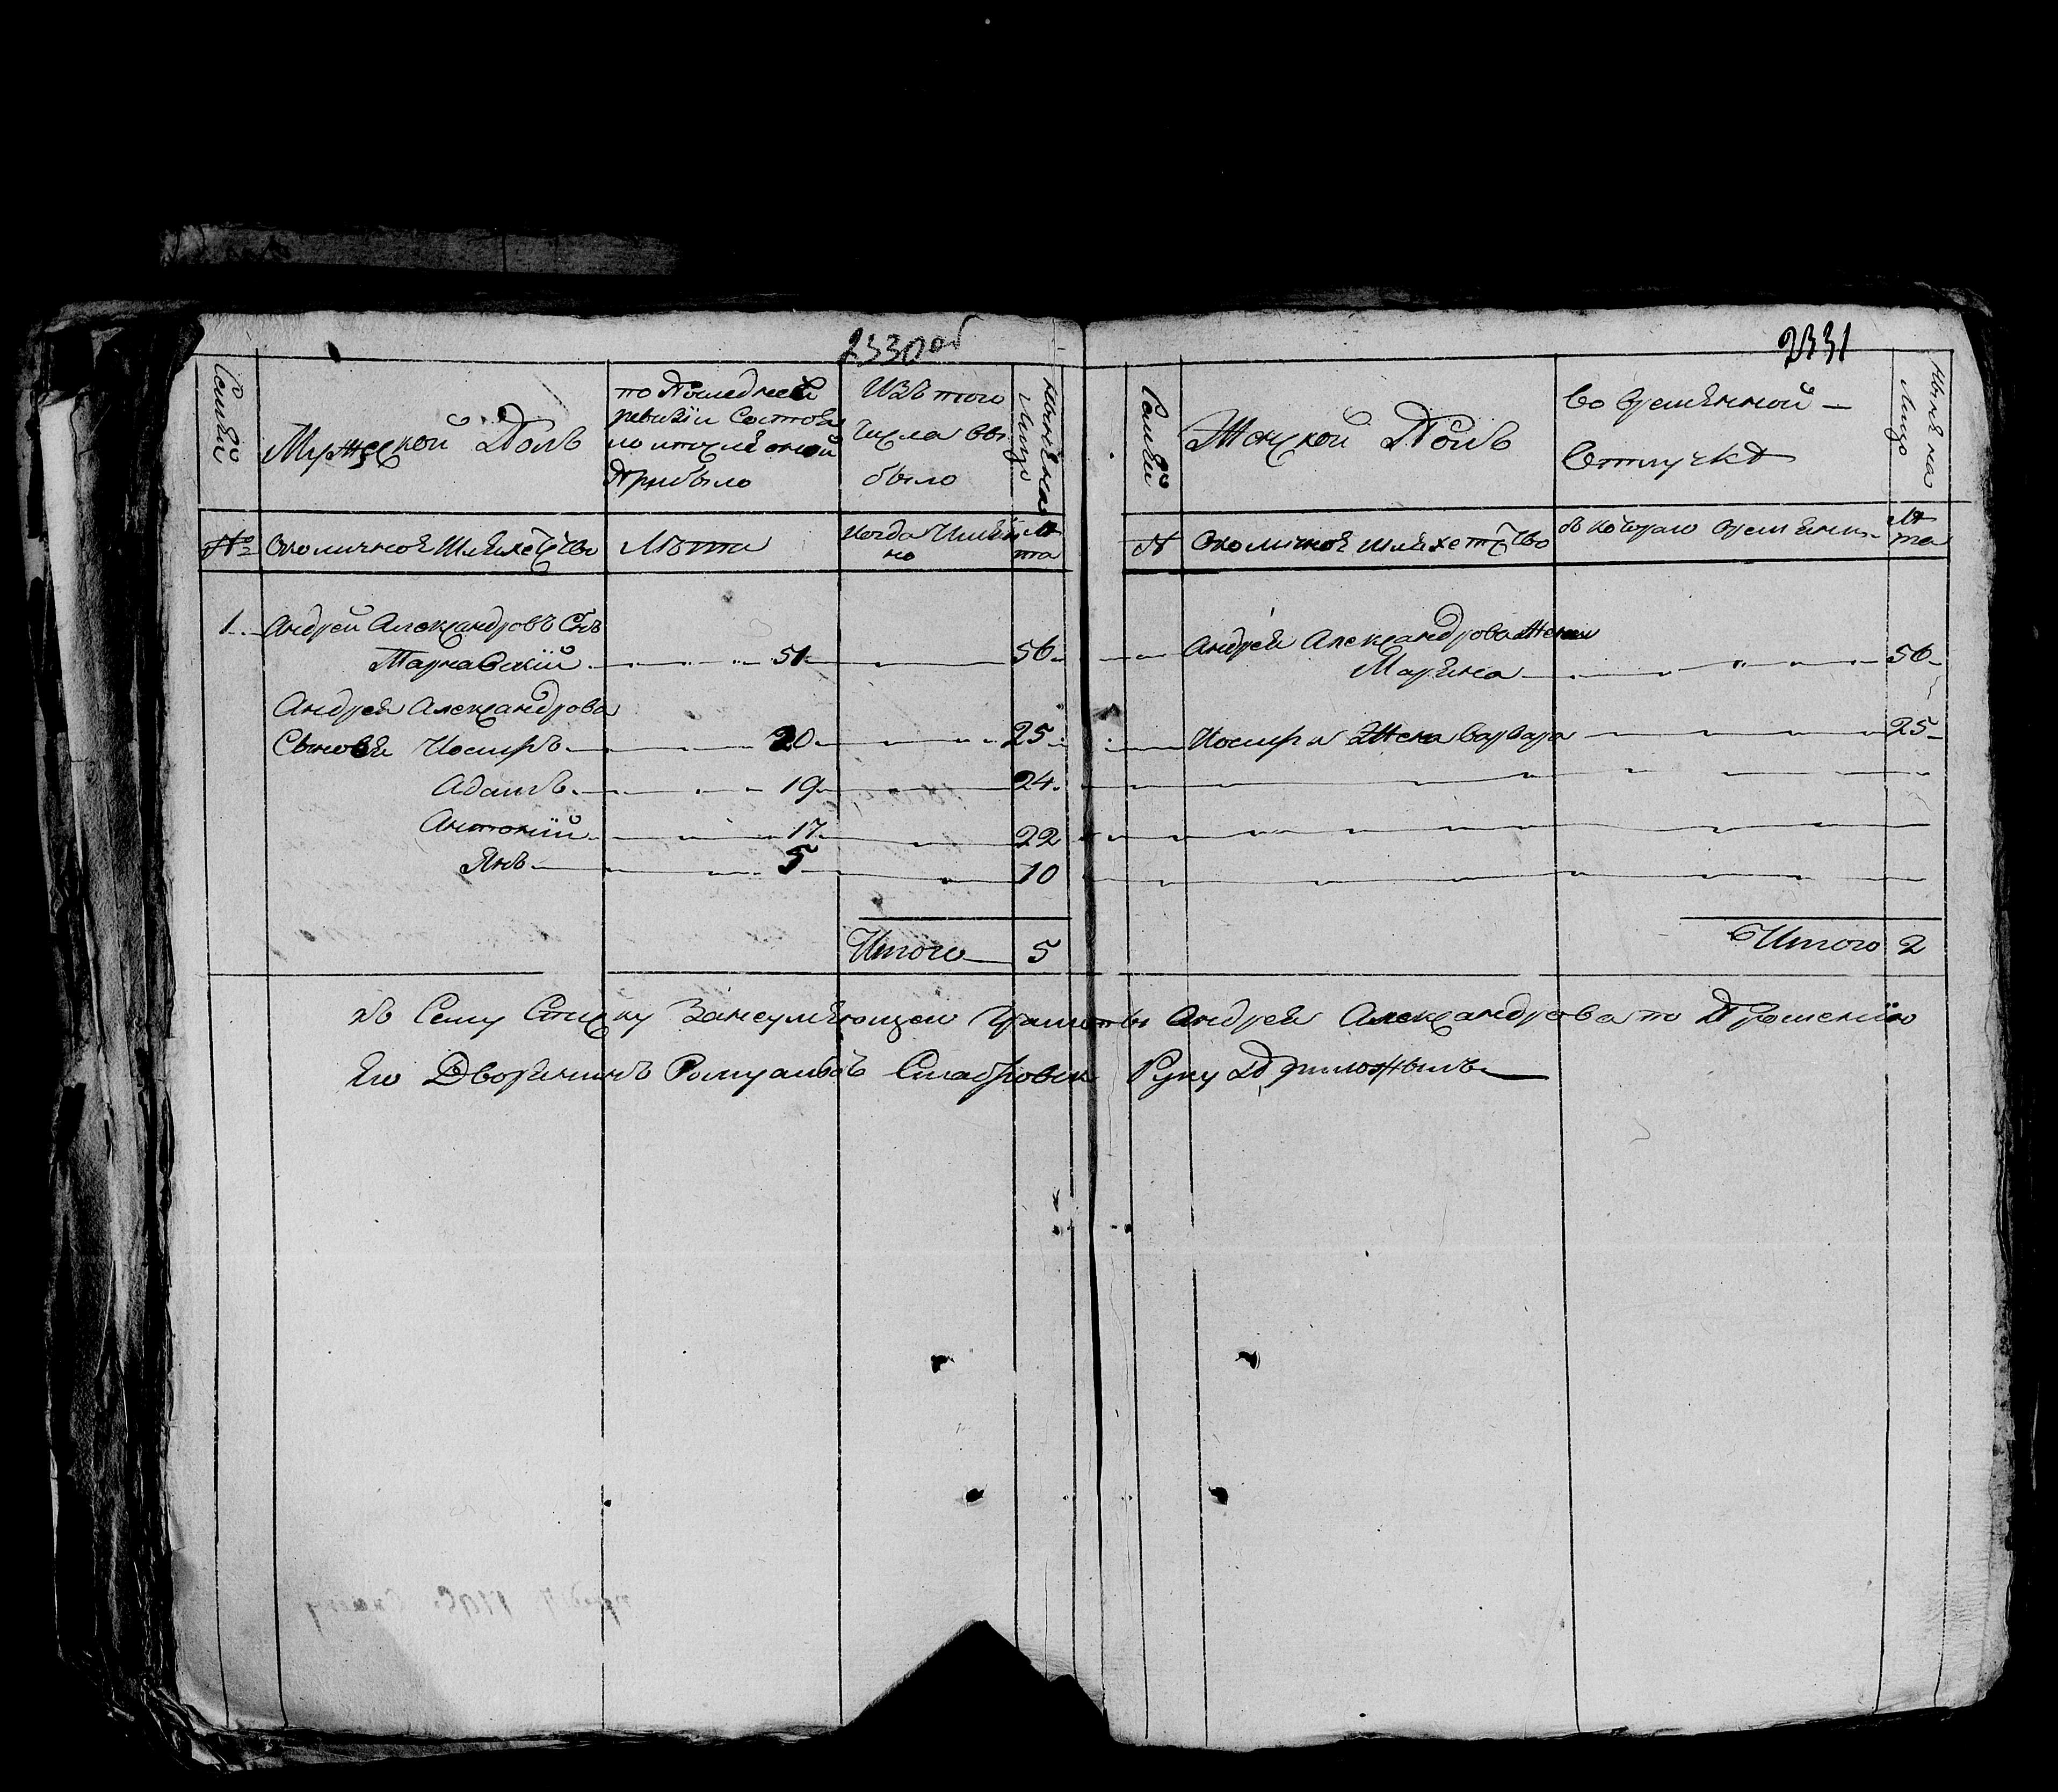 2330 об
Семей
Мужеской Полъ
по Последней
ревизіи Состоя
ло ипосле оной
Прибыло
Изъ того
числа вы
было
Ныне на
Лицо
№
Околичное Шляхетство
Лѣта
когда Имян
но
Лѣ
та
1. Андрей Александровъ Сынъ
Тарнавскій 51 56
Андрея Александрова
Сыновья Иосифъ 20 25
Адамъ 19 24
Антоній 17 22
Янъ 5 10
Итого 5
2331
Семей
Женской Полъ
Во временной
Отлучкѣ
Ныне на
Лицо
№
Околичное шляхетство
съ которого времяни
Лѣ
та
Андрея Александрова Жена
Марьяна 56
Иосифа Жена Варвара 25
Итого 2
Къ Сему Списку Занеумѣющего Грамоты Андрея Александрова по Прошенію
Его Дворянинъ Ромуальдъ Руку Приложылъ